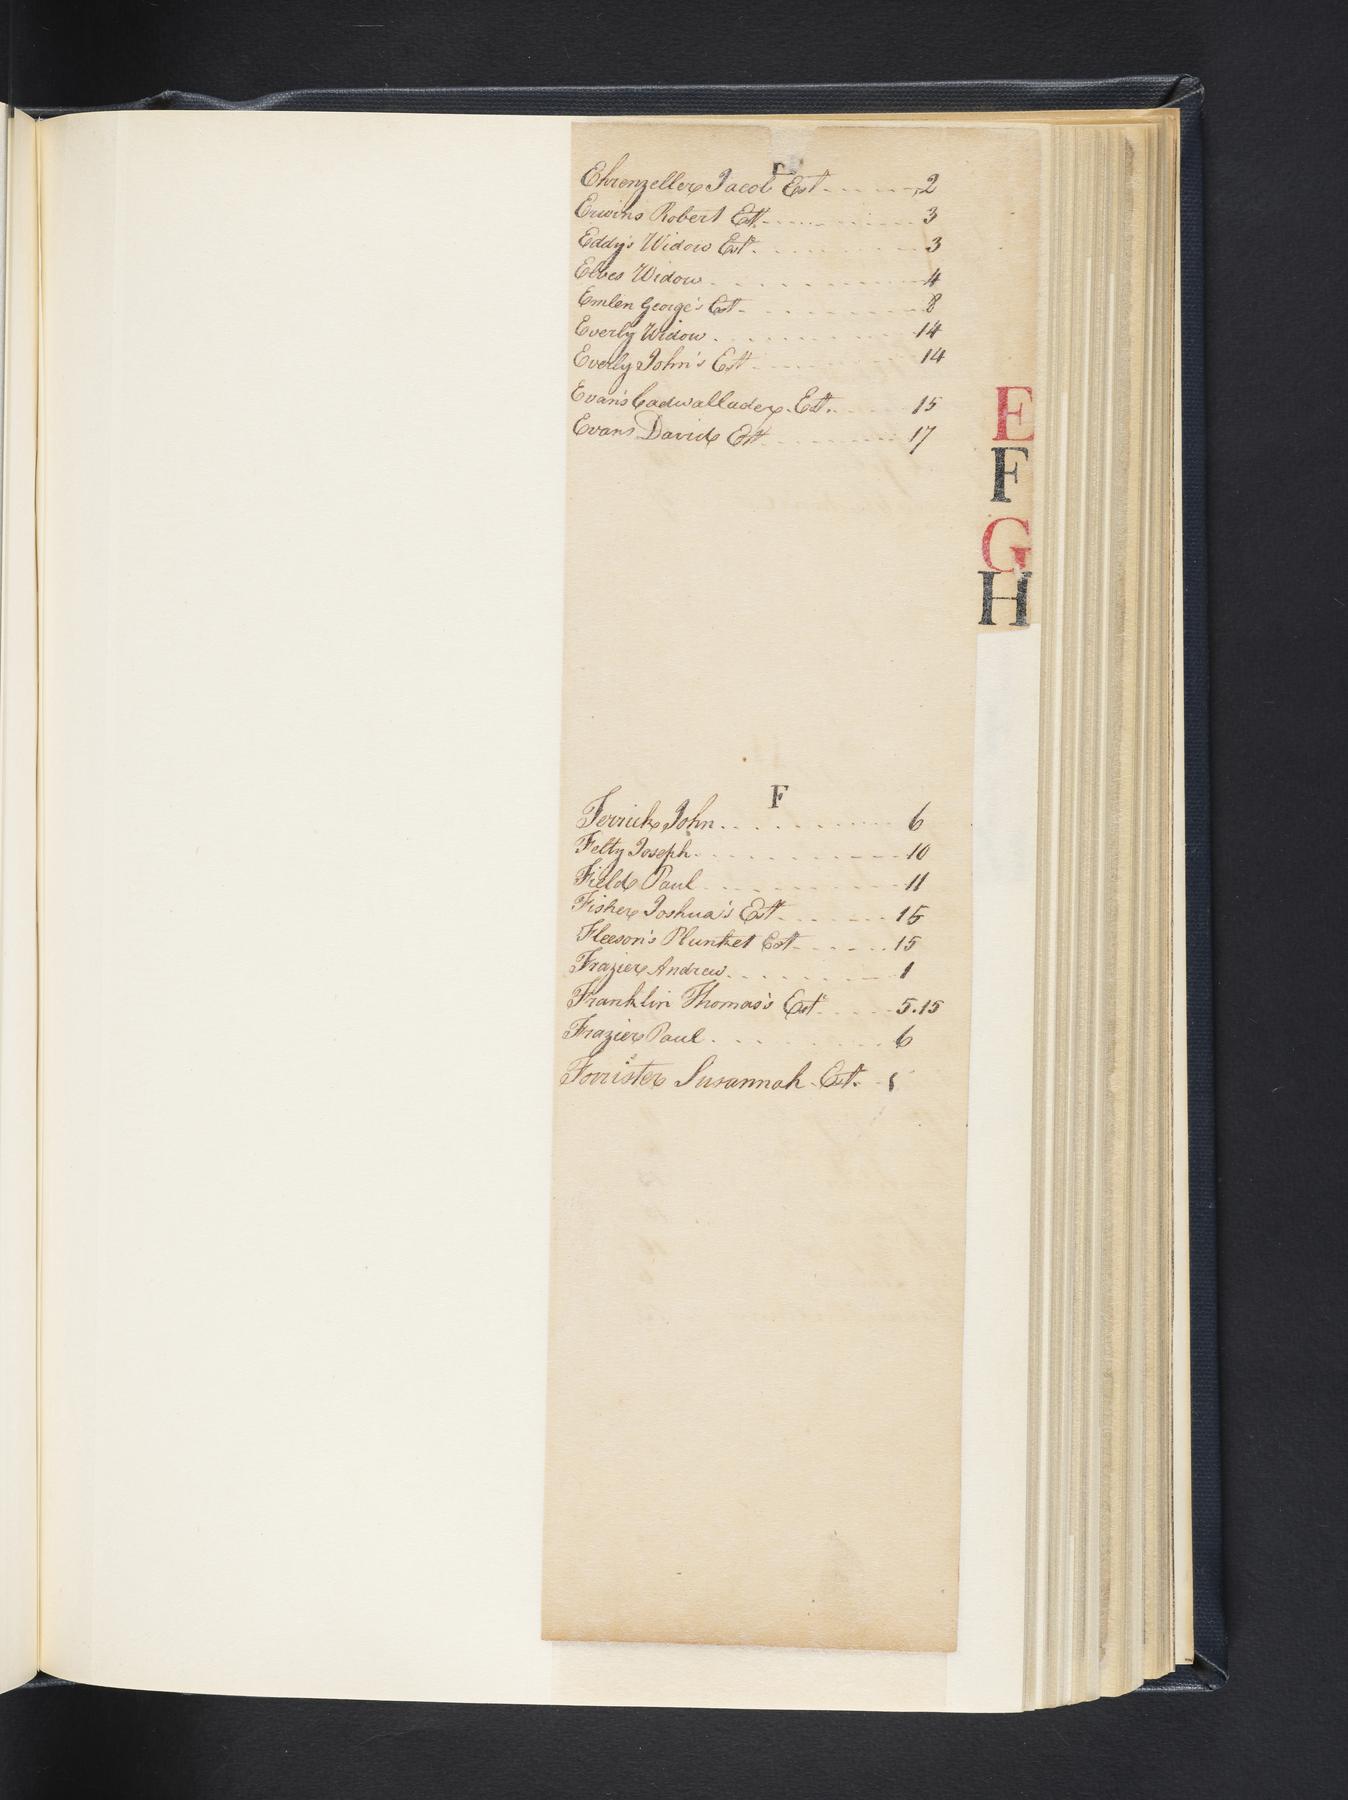 Ehrenzeller Jacob Est 2
Erwins Robert Est 3
Eddy's Widow Est 3
Elves Widow 4
Emlen George's Est 8
Everly Widow 14
Everly John's Est 14
Evan's Cadwallader Est. 15
Evans David Est 17
E
F
G
H
F
Ferrick John 6
Felty Joseph 10
Field Paul 11
Fisher Joshua's Est 15
Fleeson's Plunket Est 15
Frazier Andrew 1
Franklin Thomas's Est 5.15
Frazier Paul 6
Forrister Susannah Est.